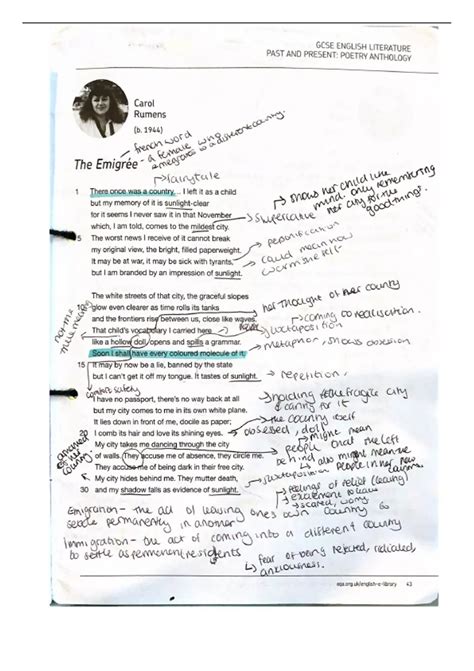 GCSE ENGLISH LITERATURE
PAST AND PRESENT: POETRY ANTHOLOGY
Carol
Rumens
(b. 1944)
french word
- a female who
emegrates to a different country.
The Emigrée
fairytale
1 There once was a country... I left it as a child
but my memory of it is sunlight-clear
for it seems I never saw it in that November
which, I am told, comes to the mildest city.
5 The worst news I receive of it cannot break
my original view, the bright, filled paperweight.
It may be at war, it may be sick with tyrants,
but I am branded by an impression of sunlight.
shows her child like
mind. only remembering
her city for the
good things.
superlative
personification
could mean how
warm she felt
The white streets of that city, the graceful slopes
glow even clearer as time rolls its tanks
10 and the frontiers rise between us, close like waves.
That child's vocabulary I carried here
like a hollow doll, opens and spills a grammar.
Soon I shall have every coloured molecule of it.
15 It may by now be a lie, banned by the state
but I can't get it off my tongue. It tastes of sunlight.
her thought of her country
coming to realisation.
juxtaposition
metaphor, shows obsession
repetition.
comfort safety
I have no passport, there's no way back at all
but my city comes to me in its own white plane.
It lies down in front of me, docile as paper;
20 I comb its hair and love its shining eyes.
My city takes me dancing through the city
of walls. They accuse me of absence, they circle me.
They accuse me of being dark in their free city.
My city hides behind me. They mutter death,
30 and my shadow falls as evidence of sunlight.
holding to the fragile city
& caring for it
the country itself
obsessed, doll
might mean
people that she left
behind
also might mean the
people in her new
juxtaposition
feelings of relief (leaving)
excitement to leave
scared, worry
Emigration - the act of leaving ones own country to
settle permanently in another
Immigration - the act of coming into a different country
to settle as permenent residents
fear of being rejected, rediculed,
anxiousness.
aqa.org.uk/english-e-library 43